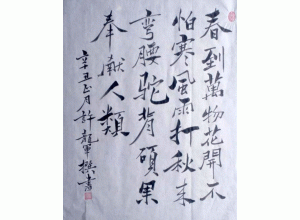 春到萬物花開不
怕寒風雨打秋来
彎腰駝背碩果
奉献人類
辛丑正月許龍軍撰書